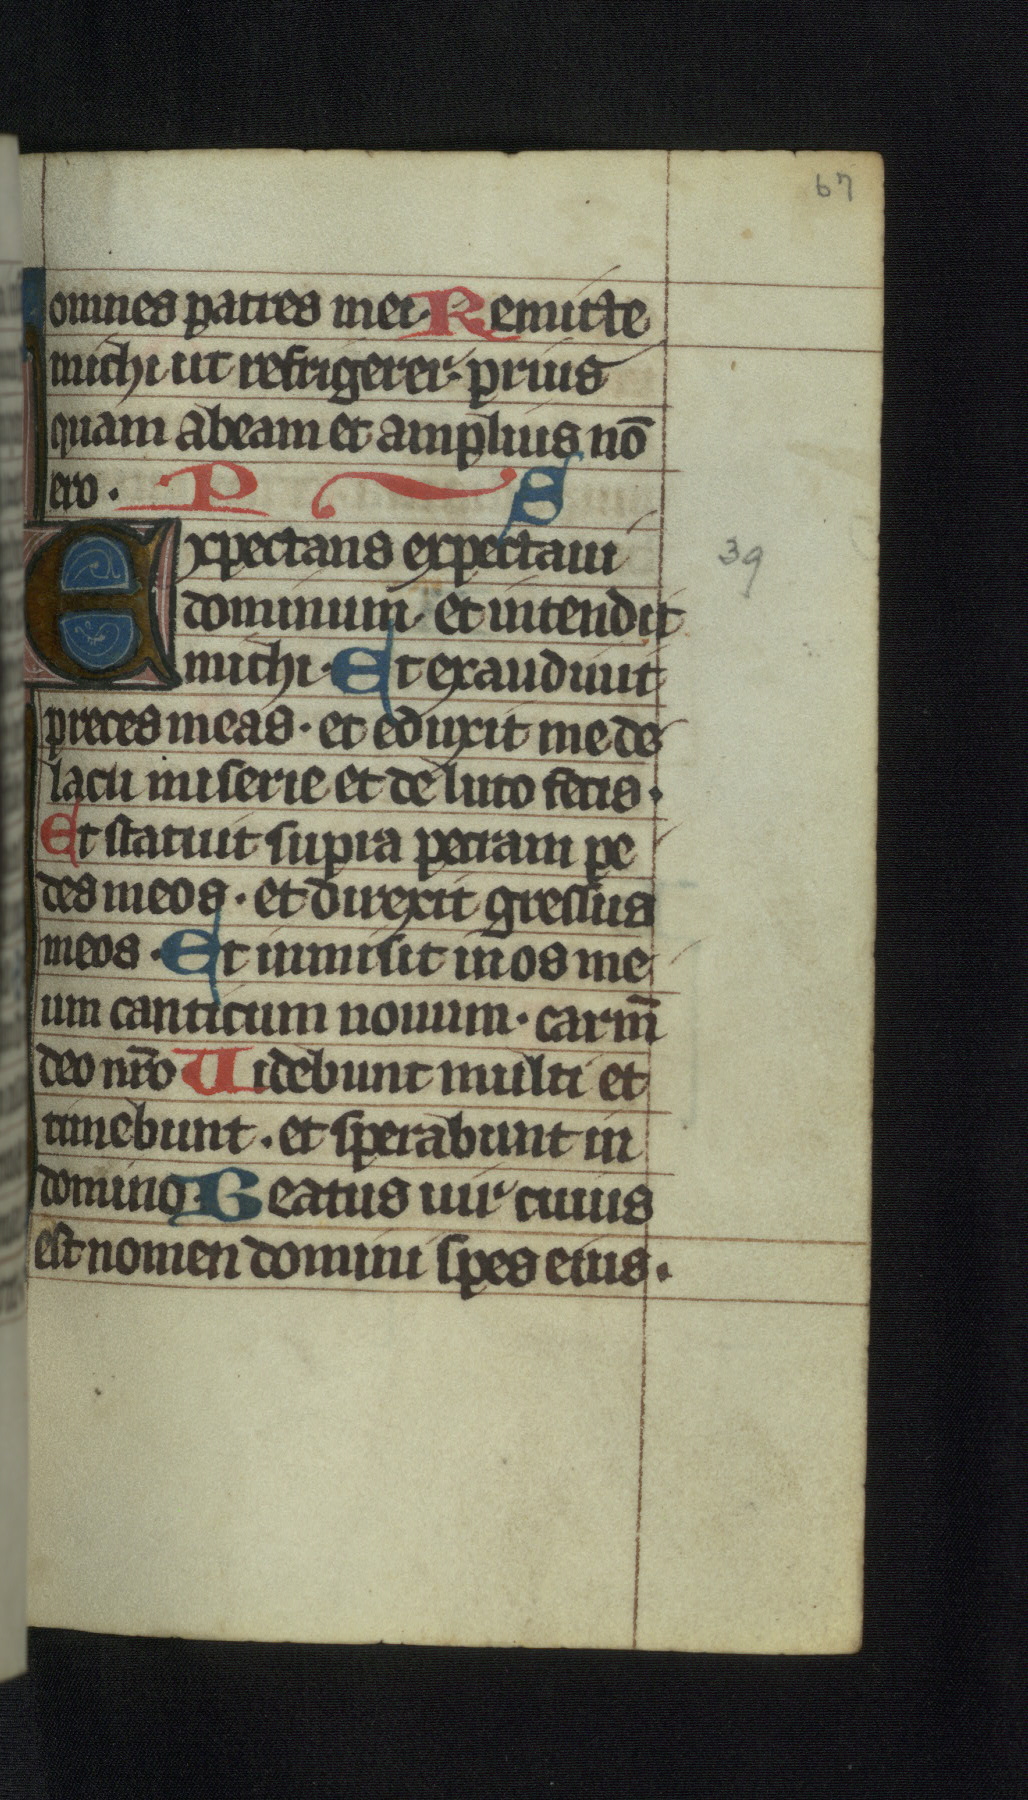 67
omnes patres mei Remitte
michi ut refrigerer· prius
quam abeam et amplius nō
ero · P S
Expectans expectaui
dominum· et intendit
michi· Et exaudiuit
preces meas · et eduxit me de
lacu miserie et de luto fecis ·
Et statuit supra petram pe
des meos · et direxit gressus
meos · Et inmisit in os me
um canticum nouum · carm̄
deo nr̄o Uidebunt multi et
timebunt · et sperabunt in
domino Beatus uir cuius
est nomen domini spes eius ·
39